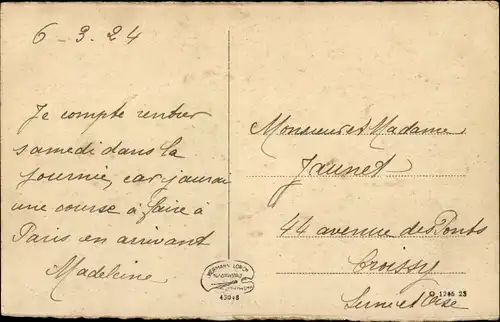 6-3.24
Je compte rentrer
samedi dans la
journée, car j'aurai
une course à faire à
Paris en arrivant
Madeleine
Monsieur et Madame
Jaunet
44 avenue des Ponts
Croissy
Seine et Oise
HERMANN LORCH
43048
1265 23